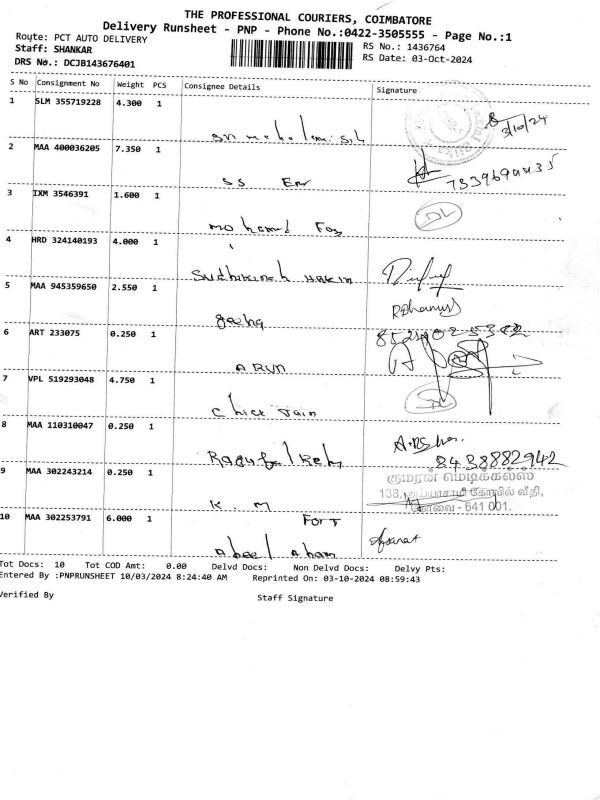 THE PROFESSIONAL COURIERS, COIMBATORE
Delivery Runsheet - PNP - Phone No.:0422-3505555 - Page No.:1
Route: PCT AUTO DELIVERY
RS No.: 1436764
Staff: SHANKAR
RS Date: 03-Oct-2024
DRS No.: DCJB143676401
S No Consignment No Weight PCS Consignee Details Signature
1 SLM 355719228 4.300 1
3/10/24
2 MAA 400036205 7.350 1
SS
3 IXM 3546391 1.600 1
DL
Mohamed
4 HRD 324140193 4.000 1
5 MAA 945359650 2.550 1
6 ART 233075 0.250 1
ARUN
7 VPL 519293048 4.750 1
DL
Jain
8 MAA 110310047 0.250 1
8438882942
9 MAA 302243214 0.250 1
குமரன் மெடிக்கல்ஸ்
138, அய்யாசாமி கோவில் வீதி,
K. M
கோவை - 641 001.
10 MAA 302253791 6.000 1
FORT
Tot Docs: 10 Tot COD Amt: 0.00 Delvd Docs: Non Delvd Docs: Delvy Pts:
Entered By :PNPRUNSHEET 10/03/2024 8:24:40 AM Reprinted On: 03-10-2024 08:59:43
Verified By
Staff Signature